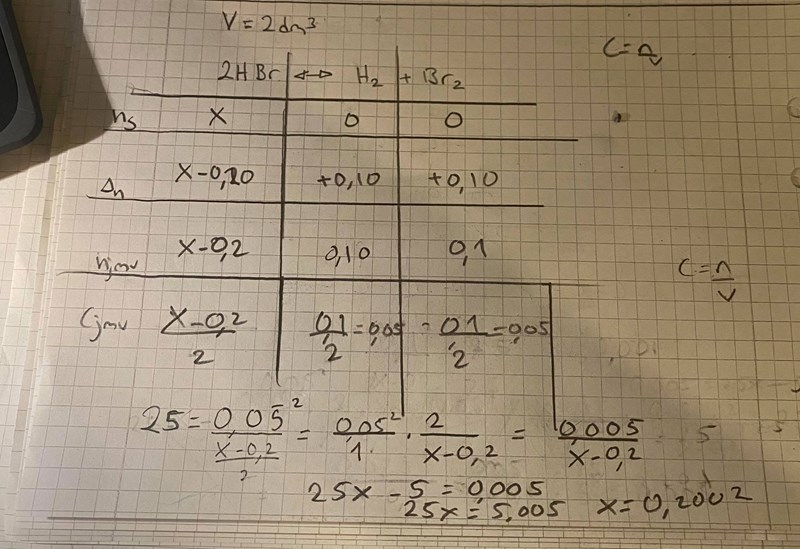 V = 2dm³
C = n/v
2HBr ↔ H₂ + Br₂
ns x 0 0
Δn x-0,20 +0,10 +0,10
njmv x-0,2 0,10 0,1
C = n/v
Cjmv x-0,2/2 0,1/2 = 0,05 - 0,1/2 = 0,05
25 = 0,05²/(x-0,2/2) = 0,05²/1 · 2/x-0,2 = 0,005/x-0,2
25x - 5 = 0,005
25x = 5,005 x = 0,2002